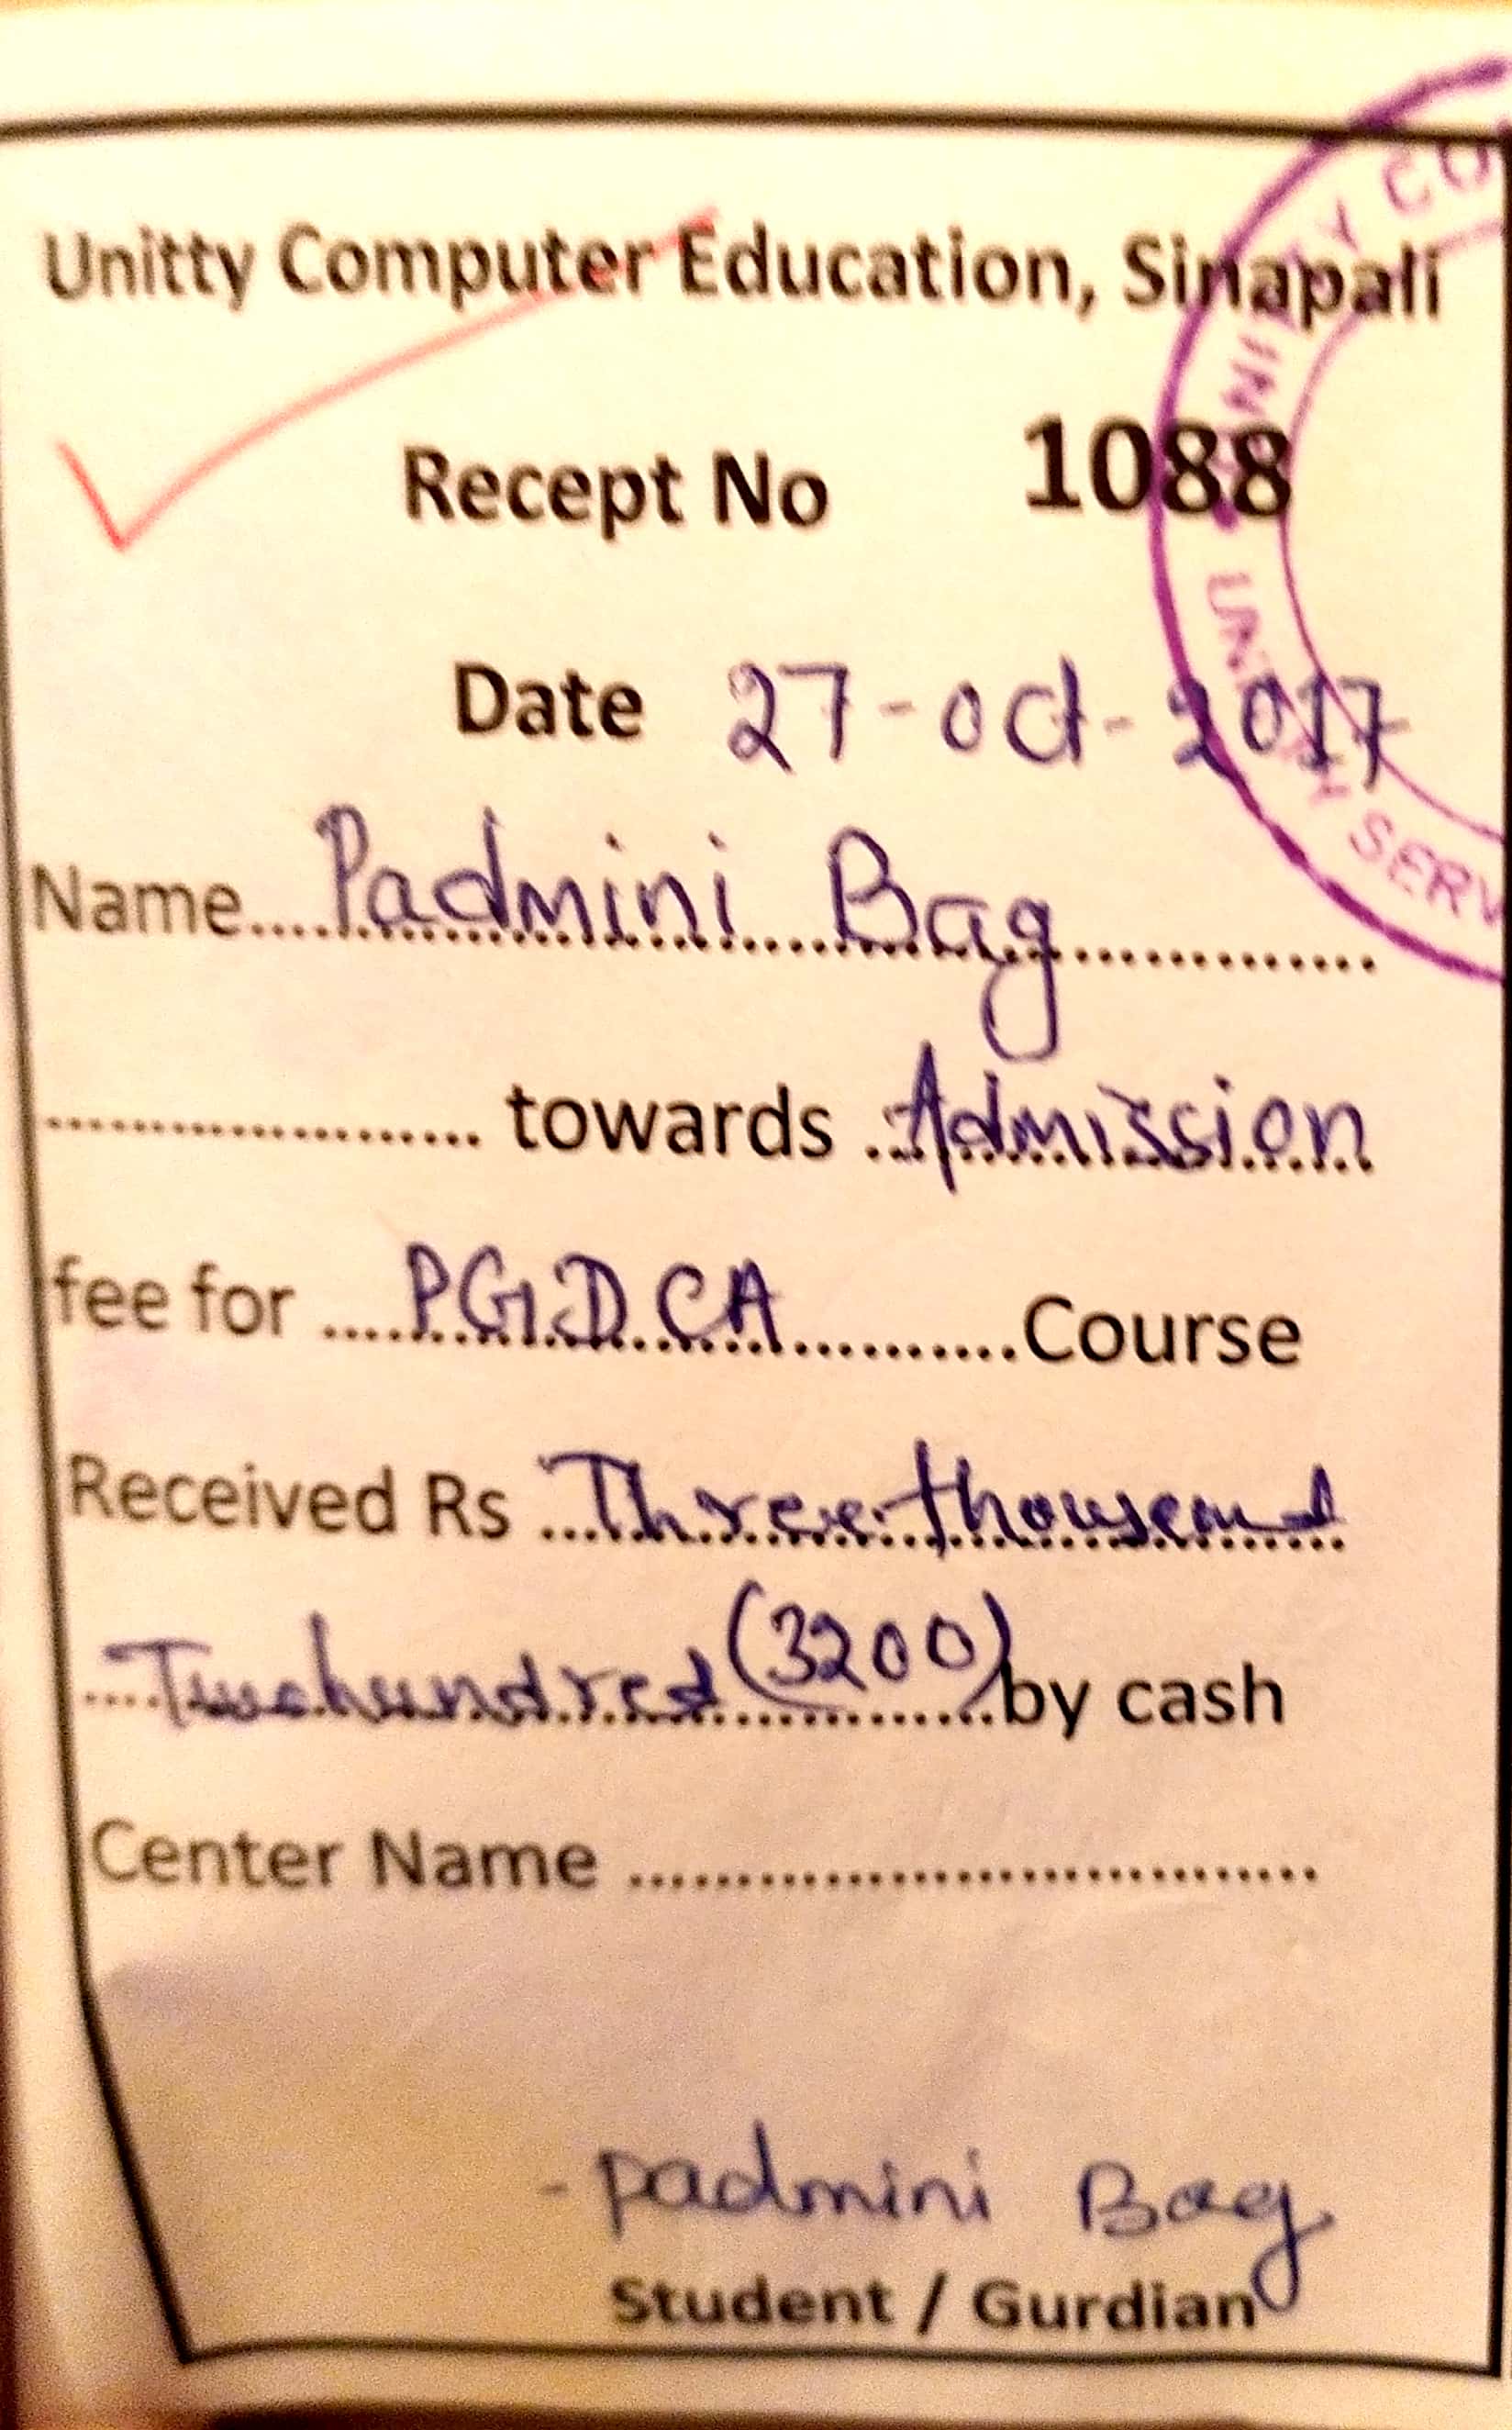 Unitty Computer Education, Sinapali
Recept No 1088
Date 27-oct-2017
Name....Padmini Bag............
.................... towards ..Admission
fee for ....PGDCA..........Course
Received Rs ...Three thousand
....Two hundred (3200) by cash
Center Name ................................
- padmini Bag
Student / Gurdian